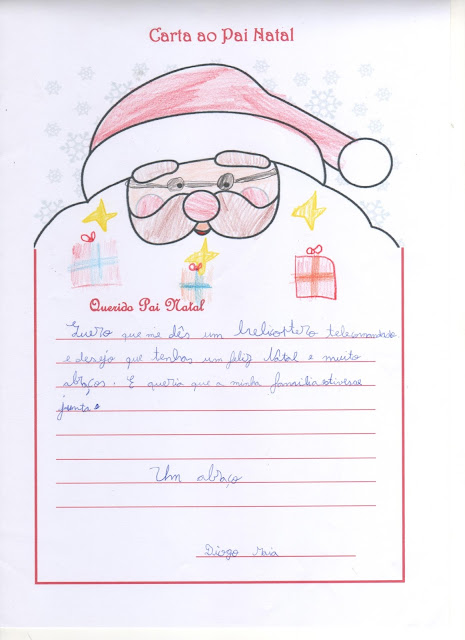 Carta ao Pai Natal
Querido Pai Natal
Quero que me dês um helicoptero telecomandado
e desejo que tenhas um feliz Natal e muito
abraços. E queria que a minha família estivesse
junta.
Um abraço
Diogo Maia